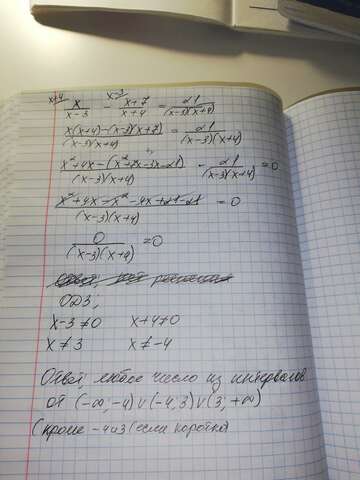 x+4 x-3
x/(x-3) - (x+7)/(x+4) = 21/((x-3)(x+4))
(x(x+4)-(x-3)(x+7))/((x-3)(x+4)) = 21/((x-3)(x+4))
(x²+4x-(x²+7x-3x-21))/((x-3)(x+4)) - 21/((x-3)(x+4)) = 0
(x²+4x-x²-4x+21-21)/((x-3)(x+4)) = 0
0/((x-3)(x+4)) = 0
Ответ: решения
ОДЗ:
x-3≠0 x+4≠0
x≠3 x≠-4
Ответ любое число из интервалов
от (-∞;-4)∨(-4;3)∨(3;+∞)
(кроме -4 и 3 (если коротко)